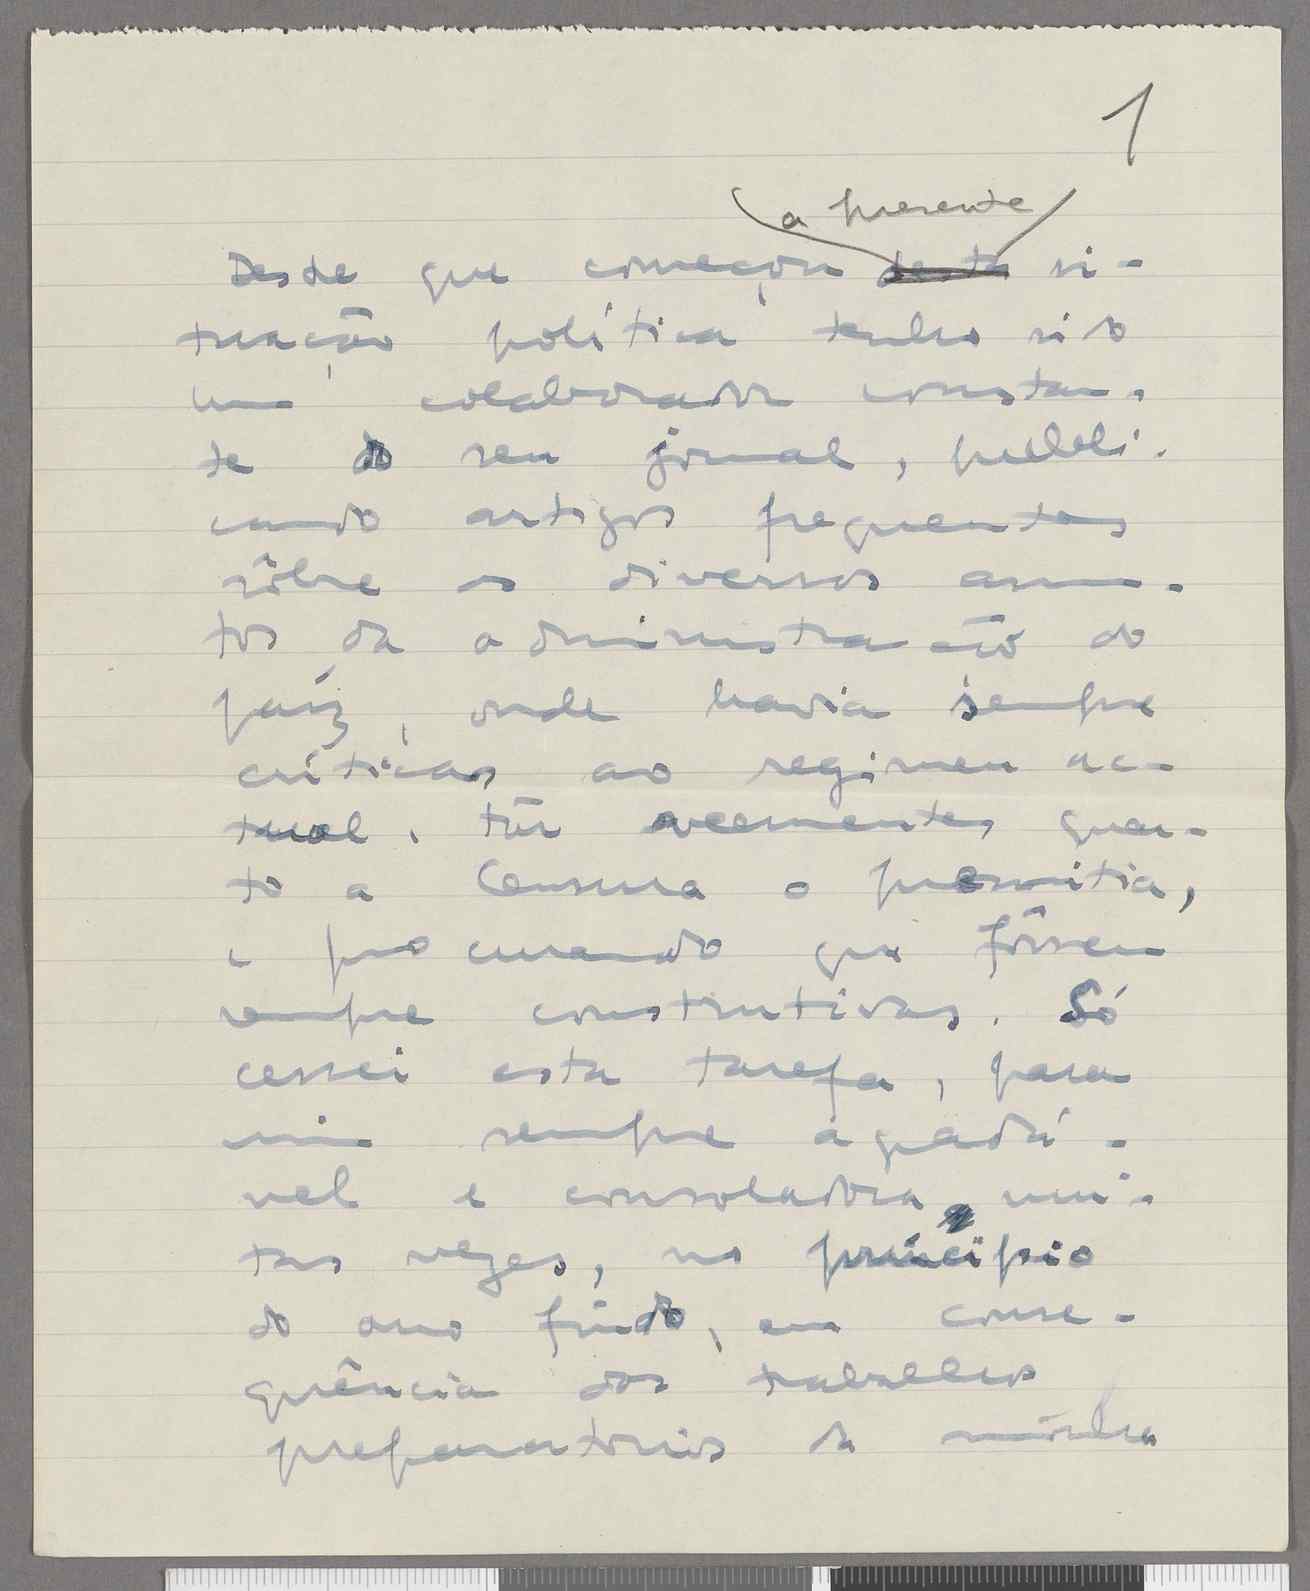 1
a presente
Desde que começou desta si-
tuação política tenho sido
um colaborador constan-
te do seu jornal, publi-
cando artigos frequentes
sôbre os diversos assun-
tos da administração do
paíz, onde havia sempre
críticas ao regimen ac-
tual, tão veementes quan-
to a Censura o permitia,
e procurando que fôssem
sempre construtivas. Só
cessei esta tarefa, para
mim sempre agradá-
vel e consoladora mui-
tas vezes, no princípio
do ano findo, em conse-
quência dos trabalhos
preparatorios da minha